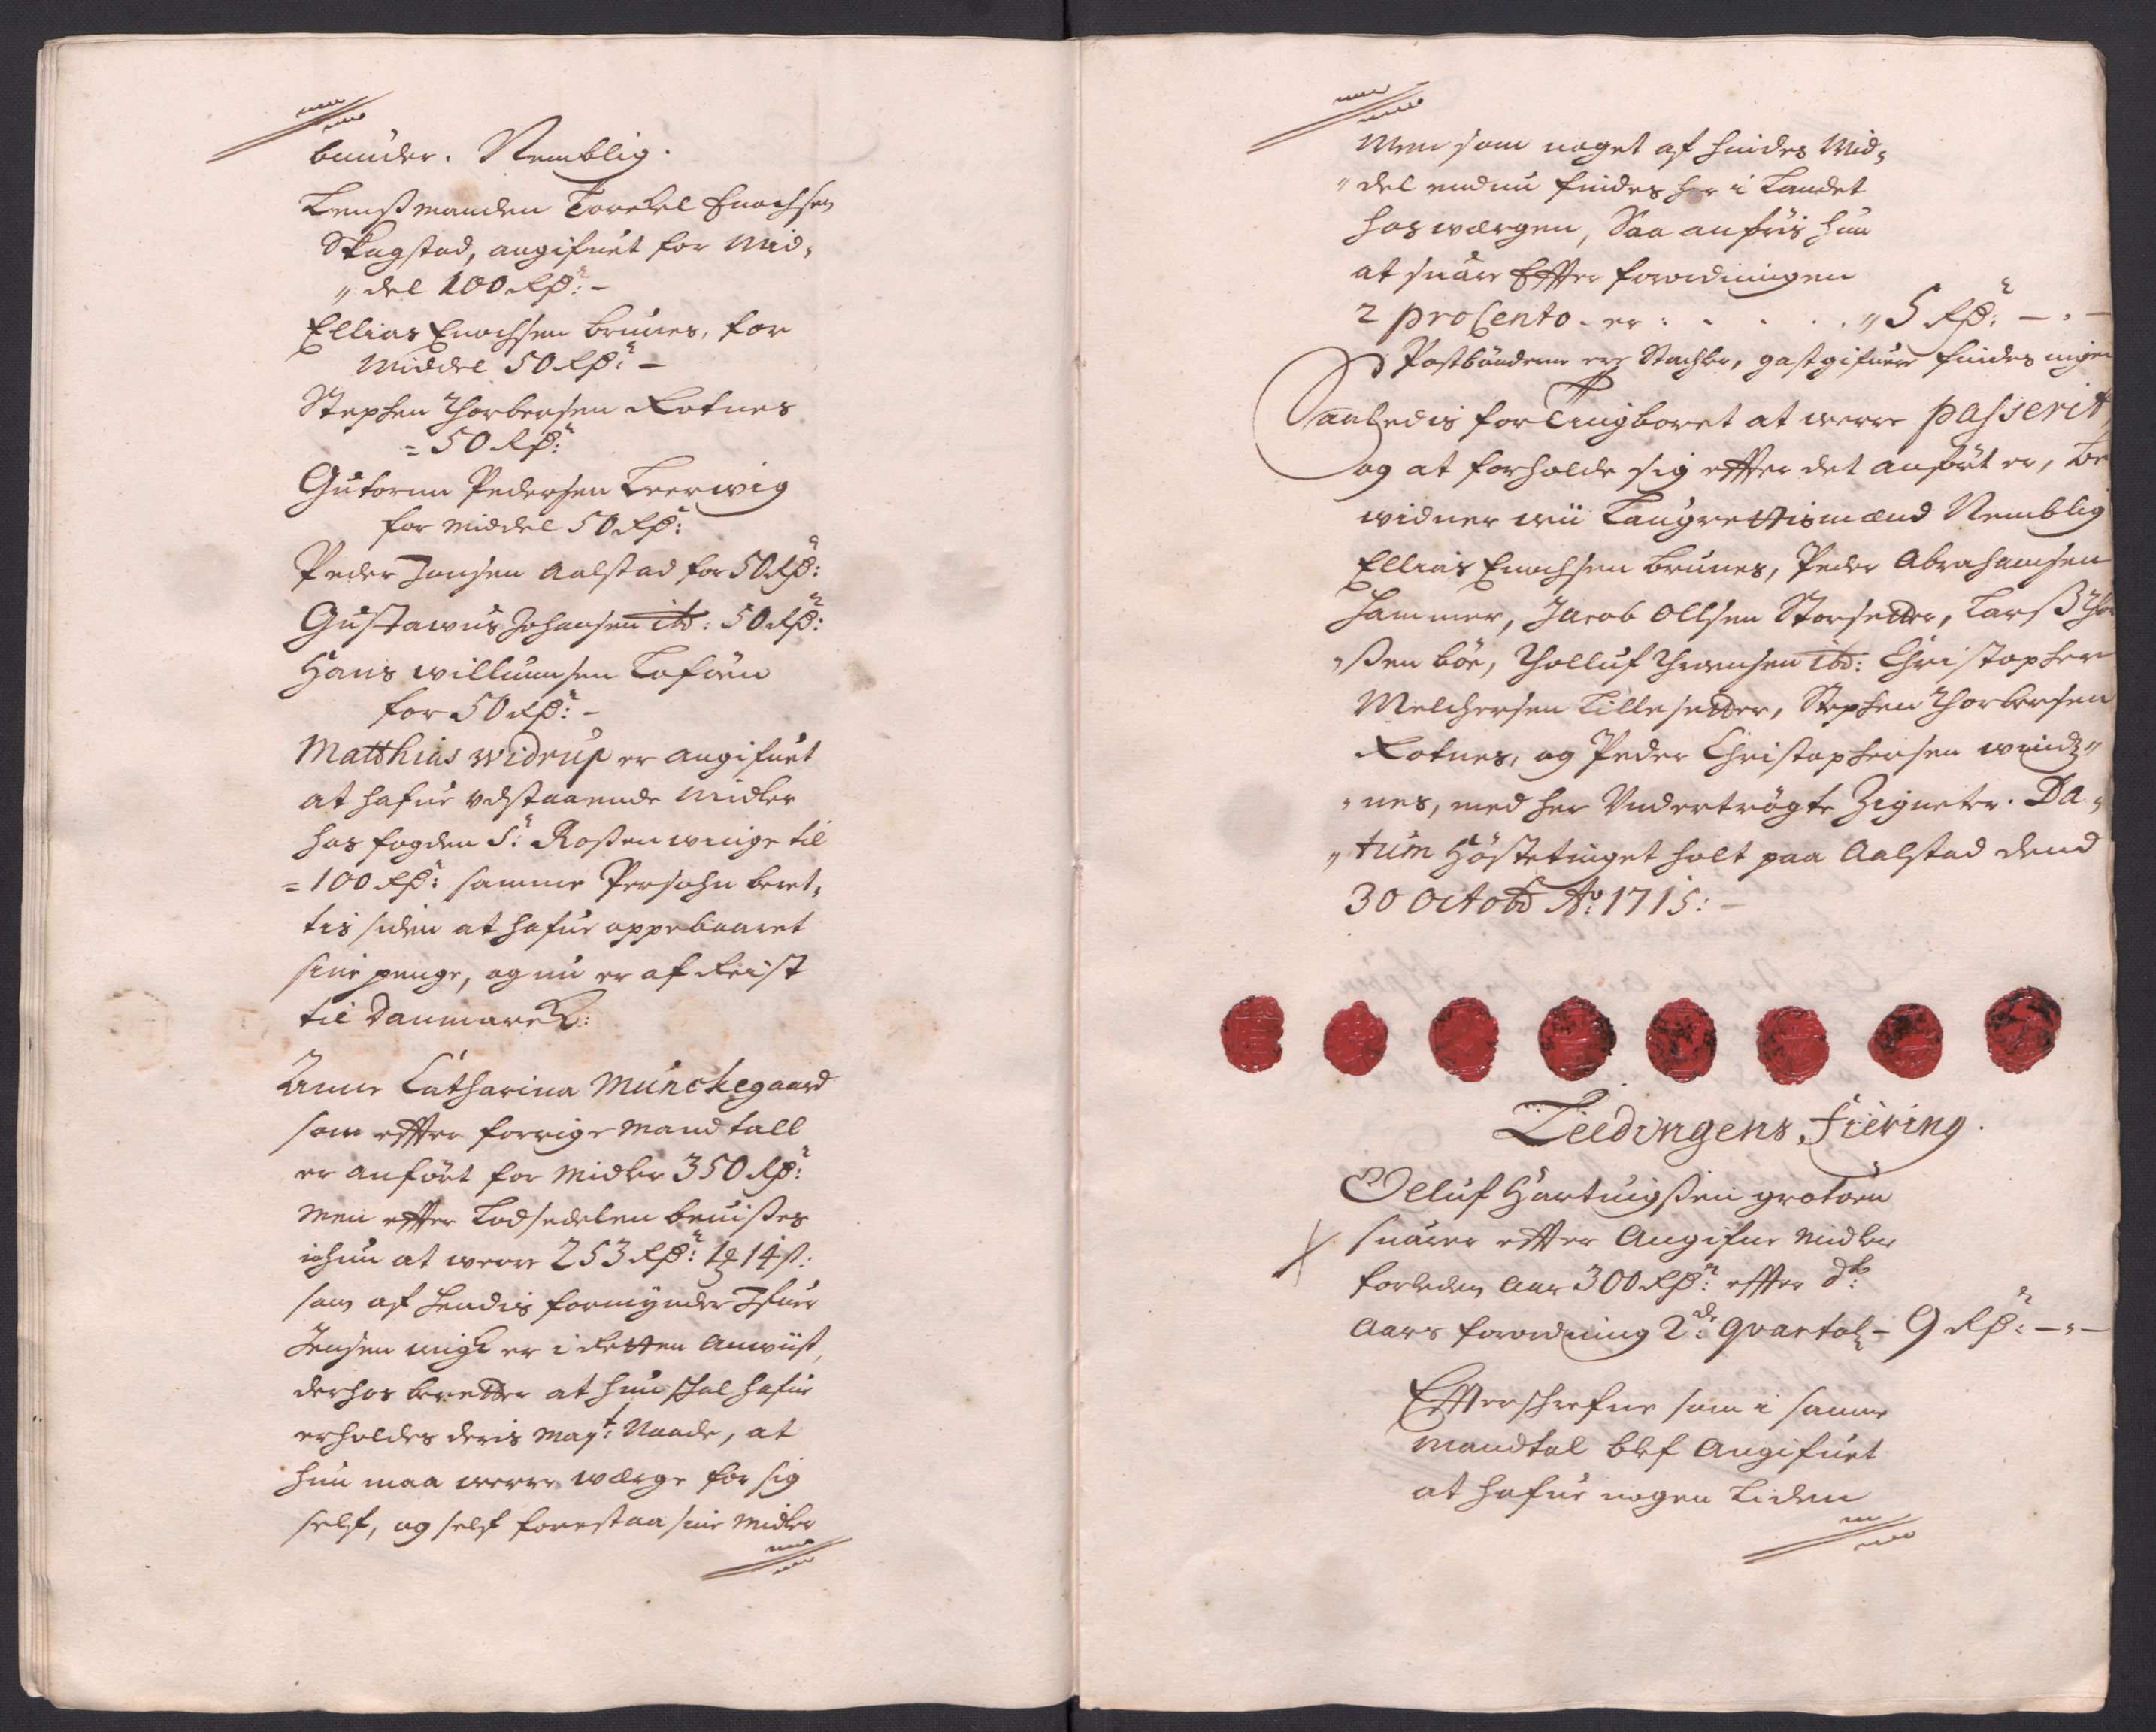 bunder. Nemblig.
Lensmanden Torckel Enochsen
Skagstad, angifuet for Mid-
„del 100 Rdr:-
Ellias Enochsen Brunes, for
Middel 50 Rdr:-
Stephen Thorbersen Rotnes
= 50 Rdr:
Guttorm Pedersen Leerwig
for Middel 50 Rdr:
Peder Jonsen Aalstad for 50 Rdr:
Gustavus Johansen ibd: 50 Rdr:
Hans Willumsen
for 50 Rdr:-
Matthias Widrup er angifuet
at hafue udstaaende midler
hos fogden Sr: Rosenwinge til
= 100 Rdr: samme Persohn beret-
tis siden at hafue oppebaaret
sine penge, og nu er af Reist
til Danmarck:
Anne Catharina Munckegaard
som effter forrige Mandtall
er anført for midler 350 Rdr:
Men effter Lodsedelen beuises
ichun at were 253 Rdr: 1 ort 14 s:
som af hendis formynder Ifuer
Jensen er i Retten anviist,
derhos beretter at hun skal hafue
erholdes deris Mayt: Naade, at
hun maa were Wærge for sig
self, og self forestaa sine midler
Men som noget af hindes Mid-
„del endnu findes her i Landet
hos wærgen, Saa anføris hun
at suare Effter forordningen
2 proCento. er: . . . . „ 5 Rdr: - . -
Postbønderne ere Stachler, gastgifuere findes ingen
Saaledis for Tingboret at were passerit,
og at forholde sig effter det anført er, be
widner wii Laugrettismænd Nemblig
Ellias Enochsen Brunes, Peder Abrahamsen
Hammer, Jacob Ollsen Storsetter, Lars
„sen bøe, Tholluf ibd: Christopher
Melchersen Lillesetter, Stephen Thorbersen
Rotnes, og Peder Christophersen Windz„
„nes, med her Undertrøgte Zigneter. Da„
„tum Høstetinget holt paa Aalstad dend
30 Octobr Ao: 1715:-
Lødingens Fiering.
Olluf Hartuigsen
suarer effter Angifne midler
forleden Aar 300 Rdr: effter do:
Aars forordning 2de: quartal - 9 Rdr: - „ -
Effterschrefne som i samme
Mandtal blef Angifuet
at hafue nogen Liden